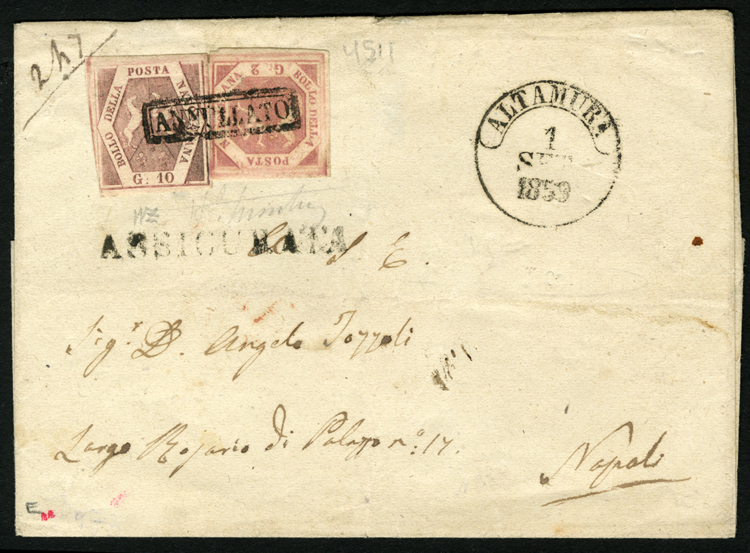 2h7
4511
POSTA
BOLLO DELLA
G. 10
G. 2
BOLLO DELLA
POSTA
ANNULLATO
ALTAMURA
1
SET
1859
WZ
ASSICURATA
S. E.
Sig.r D. Angelo Tozzoli
Largo Rosario di Palazzo no. 17.
Napoli
E